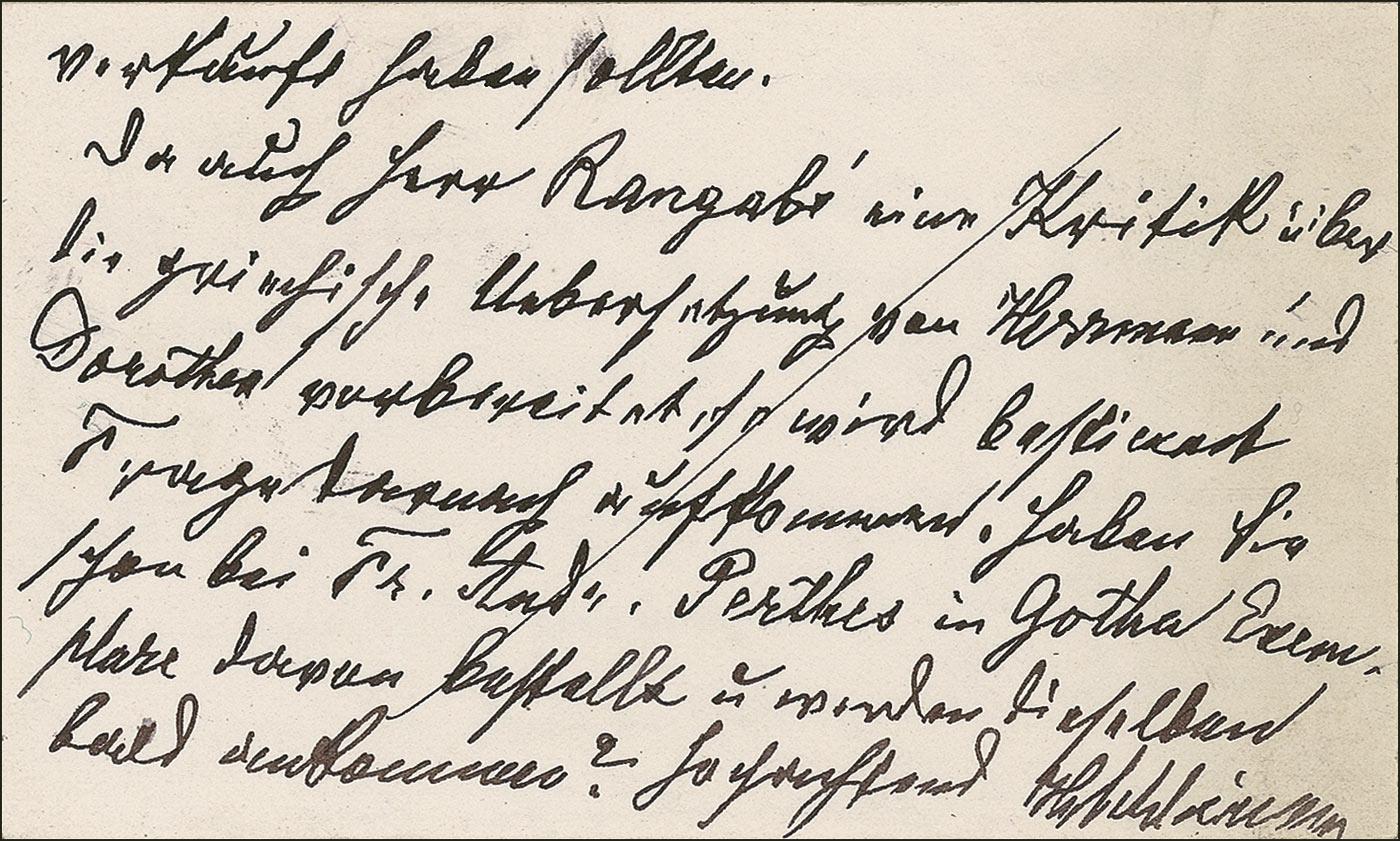 verkauft haben sollten.
Da auch Herr Rangabé eine Kritik über
die griechische Uebersetzung von Hermann und
Dorothea vorbereitet, so wird bestimmt
Frage darnach aufkommen. Haben Sie
schon bei Fr. Andr. Perthes in Gotha Exem-
plare davon bestellt u werden dieselben
bald ankommen? Hochachtend HySchliemann